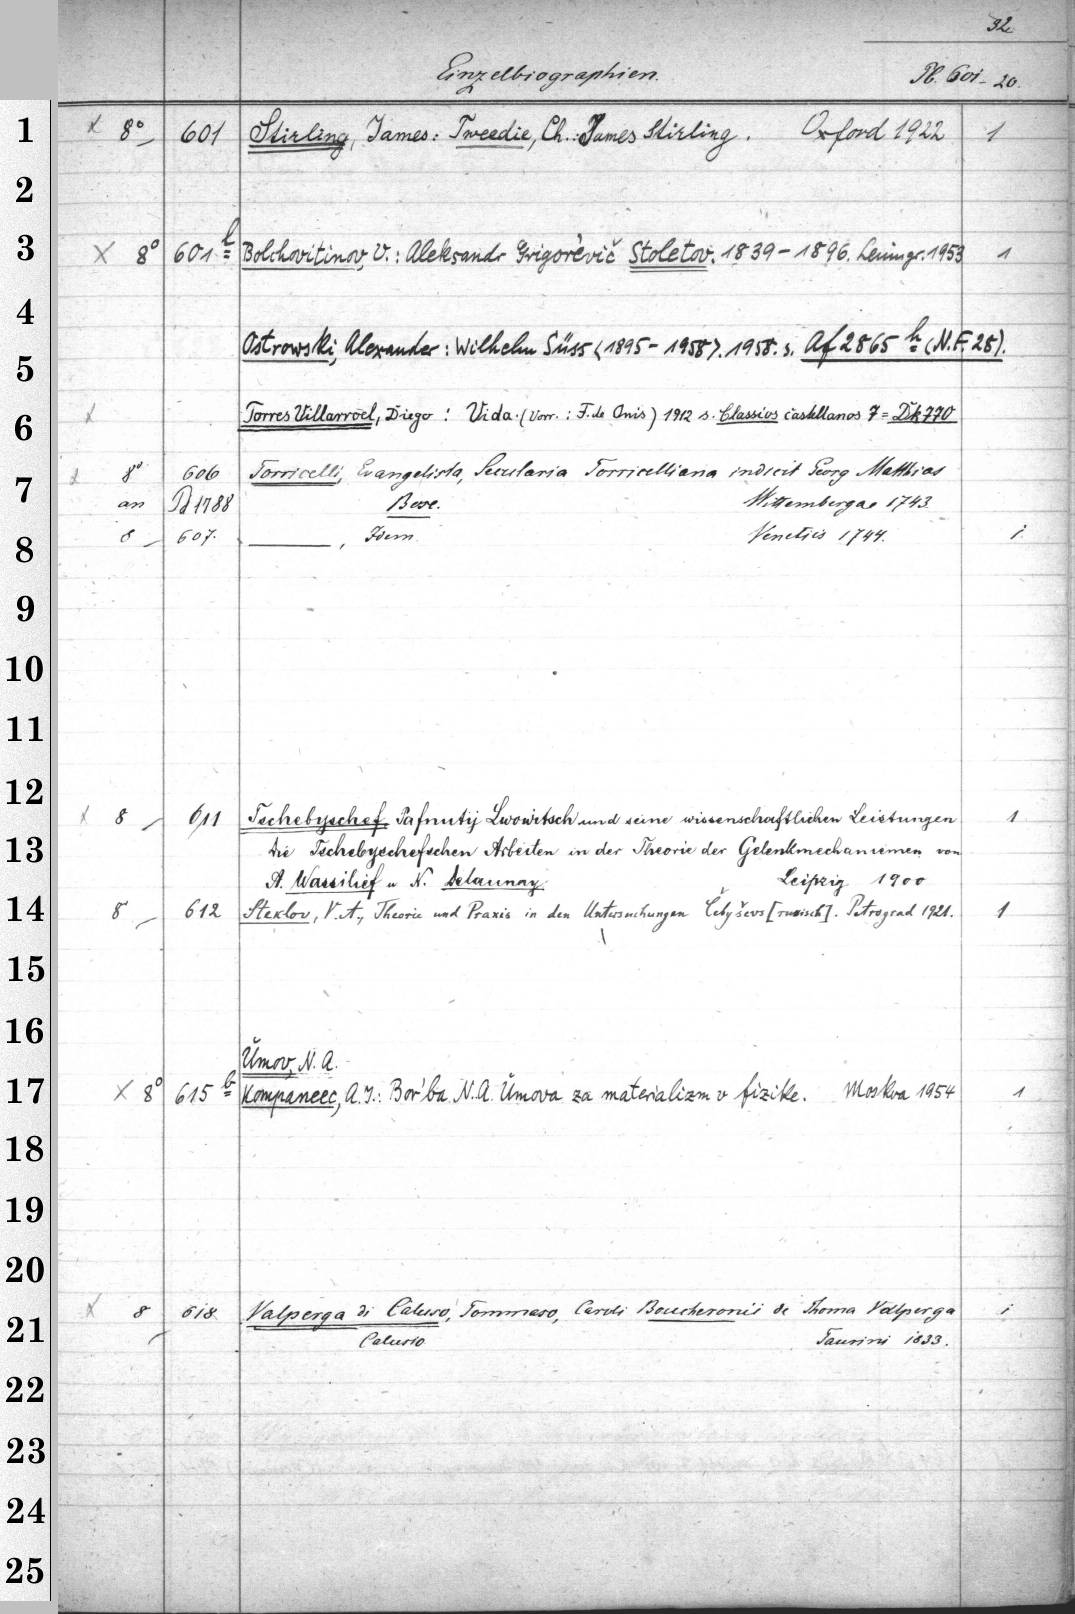 32
Einzelbiographien. Pb. 601-20.
1 x 8° 601 Stirling, James: Tweedie, Ch.: James Stirling. Oxford 1922 1
2
3 X 8° 601 h Bolchovitinov, V.: Aleksandr Grigor'evič Stoletov. 1839-1896. Leningr. 1953 1
4
5 Ostrowski, Alexander: Wilhelm Süss <1895-1958>. 1958. s. Af 2865 h (N.F. 28).
6 x Torres Villarroel, Diego: Vida. (Vorr.: F. de Onis) 1912 s. Classios castellanos 7 = Dk 770
7 x 8° 606 Torricelli, Evangelista, Secularia Torricelliana indicit Georg Matthias
an Pd 1788 Bose. Wittembergae 1743.
8 8 607. ———, Idem. Venetiis 1744. 1
9
10
11
12 x 8 611 Tschebyschef, Pafnutij Lwowitsch und seine wissenschaftlichen Leistungen 1
13 Die Tschebyschefschen Arbeiten in der Theorie der Gelenkmechanismen von
A. Wassilief u N. Delaunay. Leipzig 1900
14 8 612 Steklov, V.A., Theorie und Praxis in den Untersuchungen Čebyševs [russisch]. Petrograd 1921. 1
15
16
Umov, N.A.
17 X 8° 615 b Kompaneec, A.I.: Bor'ba N.A. Umova za materializm v fizike. Moskva 1954 1
18
19
20
x 8 618 Valperga di Caluso, Tommaso, Caroli Boucheronii de Thoma Valperga 1
21 Calusio Taurini 1833.
22
23
24
25